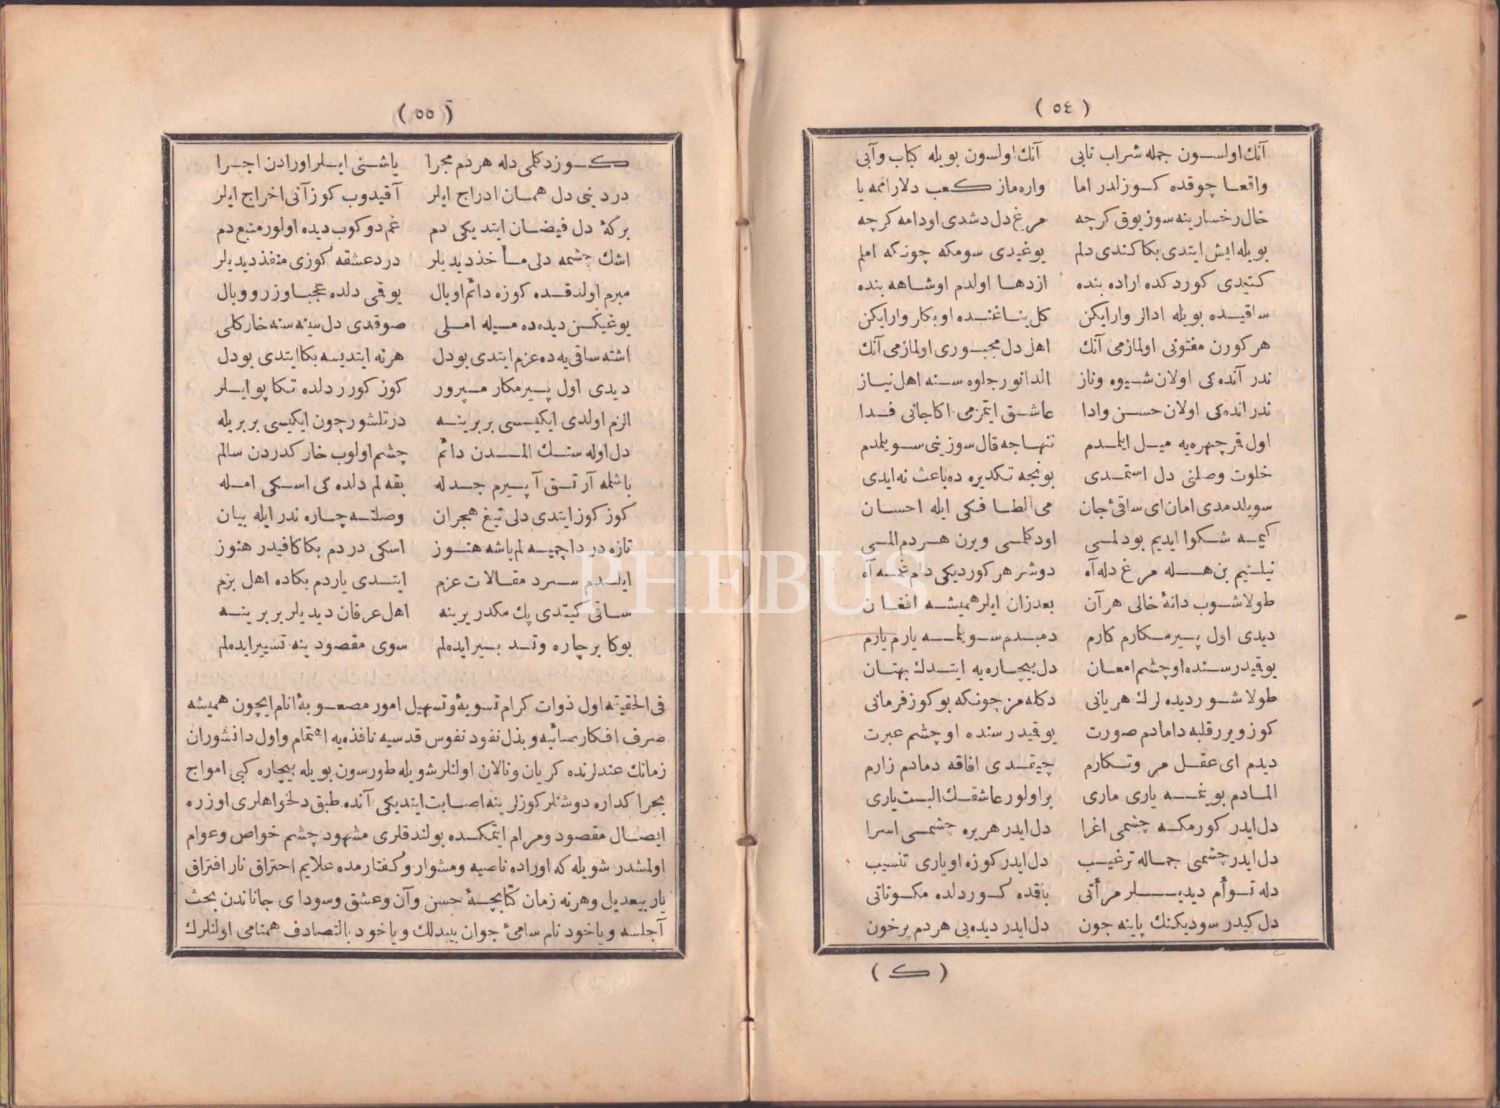 ( ٥٤ )
آنك اولسون جمله شراب نابی آنك اولسون بویله كباب وآبی
واقعا چوقده كوزلدر اما واره ماز كعب دلارا
خال رخسارینه سوز یوق كرچه مرغ دل دشدی اودامه كرچه
بویله ایش ایتدی بكا كندی دلم یوغیدی سومكه چونكه املم
كتیدی كوردكده اراده بنده ازدها اولدم اوشاهه بنده
ساقیده بویله ادالر وارایكن كل بناغنده او
هر كورن مفتونی اولمازمی آنك اهل دل مجبوری اولمازمی آنك
ندر آنده كی اولان شیوه وناز الدانور جلوه سنه اهل نیاز
ندر انده كی اولان حسن وادا عاشق ایتمزمی اكا جانی فدا
اول قر چهره یه میل ایلدم تنهاجه قال سوزینی سویلدم
خلوت وصلنی دل استمدی بونجه تكدیره ده باعث نه ایدی
سویلدمدی امان ای ساقئ جان می الطافكی ایله احسان
كیمه شكوا ایدیم بودلمی اودكلمی ویرن هردم المی
نیلیم بن هله مرغ دله آه دوشر هر كوردیكی دام غمه آه
طولاشوب دانۀ خالی هر آن بعدزان ایلر همیشه افغان
دیدی اول پیرمكارم كارم دمبدم سویلمه یارم یارم
یوقیدر سنده اوچشم امعان دل بیچاره یه ایتدك بهتان
طولاشور دیده لرك هر یانی دكله مز چونكه بو كوز فرمانی
كوز ویرر قلبه دمادم صورت یوقیدر سنده او چشم عبرت
دیدم ای عقل مر وتكارم چیقمدی افاقه دمادم زارم
المادم بویغمه یاری ماری براولور عاشقك البت یاری
دل ایدر كورمكه چشمی اغرا دل ایدر هر یره چشمی اسرا
دل ایدر چشمی جماله ترغیب دل ایدر كوزه اویاری تنسیب
دله توأم دیدیلر مرأتی باقده كوردلده مكوناتی
دل كیدر سودیكنك پاینه چون دل ایدر دیده یی هردم پرخون
( ك )
( ٥٥ )
كوزدكلمی دله هردم مجرا یاشنی ایلر اورادن اجرا
دردینی دل همان ادراج ایلر آقیدوب كوز آنی اخراج ایلر
بركۀ دل فیضان ایتدیكی دم غم دوكوب دیده اولور منبع دم
اشك چشمه دلی مأخذ دیدیلر درد عشقه كوزی منفذ دیدیلر
مبرم اولدقده كوزه دائم اوبال یوقمی دلده عجبا وزر ووبال
یوغیكن دیده ده میله املی صوقدی دل سنه سنه خار كلی
اشته ساقی یه ده عزم ایتدی بودل هر نه ایتدیسه بكا ایتدی بودل
دیدی اول پیرمكار مپرور كوز كورر دلده تكاپو ایلر
الزم اولدی ایكیسی بربرینه درتلشور چون ایكیسی بربریله
دل اوله سنك المدن دائم چشم اولوب خار كدردن سالم
باشلمه آرتق آ پیرم جدله بقه لم دلده كی اسكی امله
كوز كوز ایتدی دلی تیغ هجران وصلته چاره ندر ایله بیان
تازه درد اچمیه لم باشه هنوز اسكی دردم بكا كافیدر هنوز
ایلدم سرد مقالات عزم ایتدی یاردم بكاده اهل بزم
ساقی كیتدی پك مكدر یرینه اهل عرفان دیدیلر بربرینه
بوكا بر چاره وتدبیر ایده لم سوی مقصودینه تسییر ایده لم
فی الحقیقه اول ذوات كرام تسویه وتسهیل امور مصعوبۀ انام ایچون همیشه
صرف افكار صائبه وبذل نفود نفوس قدسیه نافذه یه اهتمام واول دانشوران
زمانك عندلرنده كریان ونالان اولنلر شویله طورسون بویله بیچاره كبی امواج
بحر اكداره دوشنلر كوزلرینه اصابت ایتدیكی آنده طبق دلخواهلری اوزره
ایصال مقصود ومرام ایتمكده بولندقلری مشهود چشم خواص وعوام
اولمشدر شویله كه اوراده ناصیه ومشوار وكفتارمده علایم احتراق نار افتراق
یار بیعدیل وهرنه زمان كتابچۀ حسن وآن وعشق وسودای جاناندن بحث
آچلسه ویاخود نام سامئ جوان بیبدلك ویاخود بالتصادف همنامی اولنلرك
PHEBUS